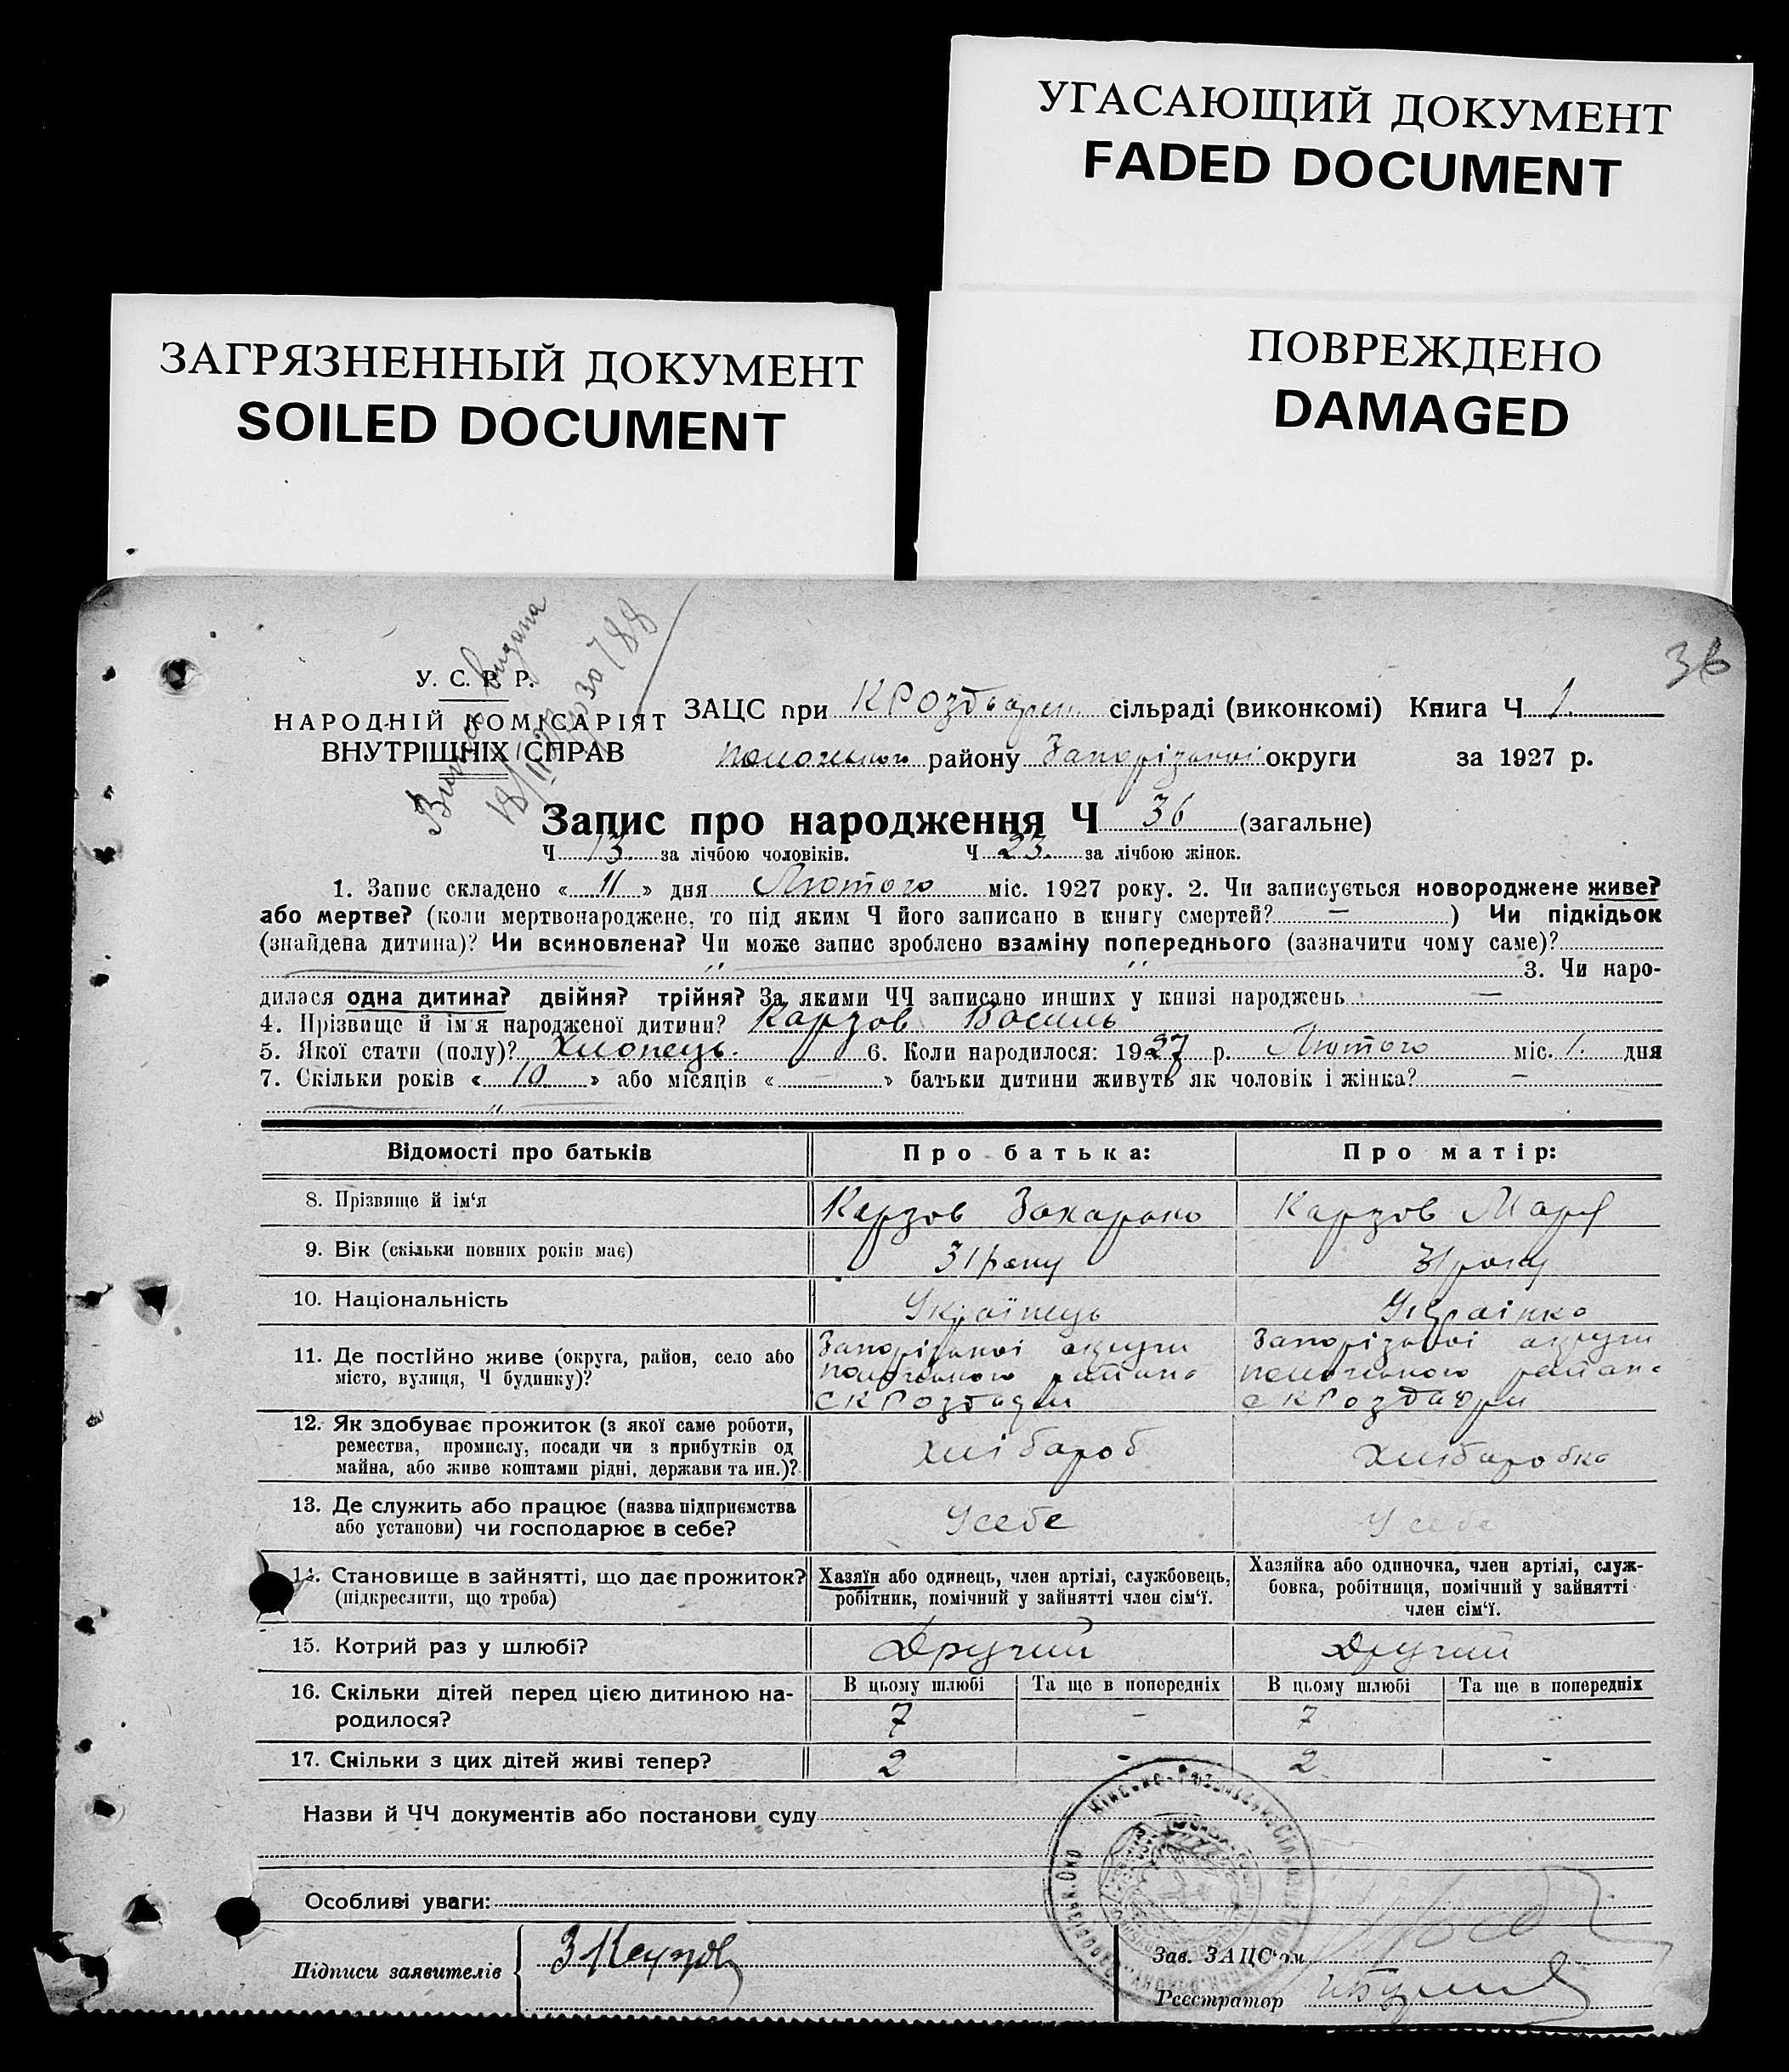 УГАСАЮЩИЙ ДОКУМЕНТ
FADED DOCUMENT
ЗАГРЯЗНЕННЫЙ ДОКУМЕНТ
SOILED DOCUMENT
ПОВРЕЖДЕНО
DAMAGED
36
У. С. Р. Р.
НАРОДНІЙ КОМІСАРІЯТ
ВНУТРІШНІХ СПРАВ
ЗАЦС при К Роздорск. сільраді (виконкомі) Книга Ч 1.
району Запорізької округи за 1927 р.
Запис про народження Ч 36 (загальне)
Ч 13. за лічбою чоловіків. Ч 23. за лічбою жінок.
1. Запис складено « 11 » дня Лютого міс. 1927 року. 2. Чи записується новороджене живе?
або мертве? (коли мертвонароджене, то під яким Ч його записано в книгу смертей? — ) Чи підкідьок
(знайдена дитина)? Чи всиновлена? Чи може запис зроблено взаміну попереднього (зазначити чому саме)?
3. Чи наро-
дилася одна дитина? двійня? трійня? За якими ЧЧ записано инших у книзі народжень —
4. Прізвище й ім'я народженої дитини? Карзов Василь
5. Якої стати (полу)? Хлопець. 6. Коли народилося: 1927 р. Лютого міс. 1. дня
7. Скільки років « 10 » або місяців « — » батьки дитини живуть як чоловік і жінка? —
Відомості про батьків Про батька: Про матір:
8. Прізвище й ім'я Карзов Карзов
9. Вік (скільки повних років має) 31 року 31 року
10. Національність Українець Українка
11. Де постійно живе (округа, район, село або
місто, вулиця, Ч будинку)?
Запорізької округи
Запорізької округи
12. Як здобуває прожиток (з якої саме роботи,
ремества, промислу, посади чи з прибутків од
майна, або живе коштами рідні, держави та ин.)?
хлібароб Хлібаробка
13. Де служить або працює (назва підприємства
або установи) чи господарює в себе?
У себе У себе
14. Становище в зайнятті, що дає прожиток?
(підкреслити, що треба)
Хазяїн або одинець, член артілі, службовець,
робітник, помічний у зайнятті член сім'ї.
Хазяйка або одиночка, член артілі, служ-
бовка, робітниця, помічний у зайнятті
член сім'ї.
15. Котрий раз у шлюбі? Другий Другий
16. Скільки дітей перед цією дитиною на-
родилося?
В цьому шлюбі Та ще в попередніх В цьому шлюбі Та ще в попередніх
7 - 7 -
17. Скільки з цих дітей живі тепер? 2 - 2 -
Назви й ЧЧ документів або постанови суду
Особливі уваги:
Підписи заявителів
Зав. ЗАЦС'ом
Реєстратор